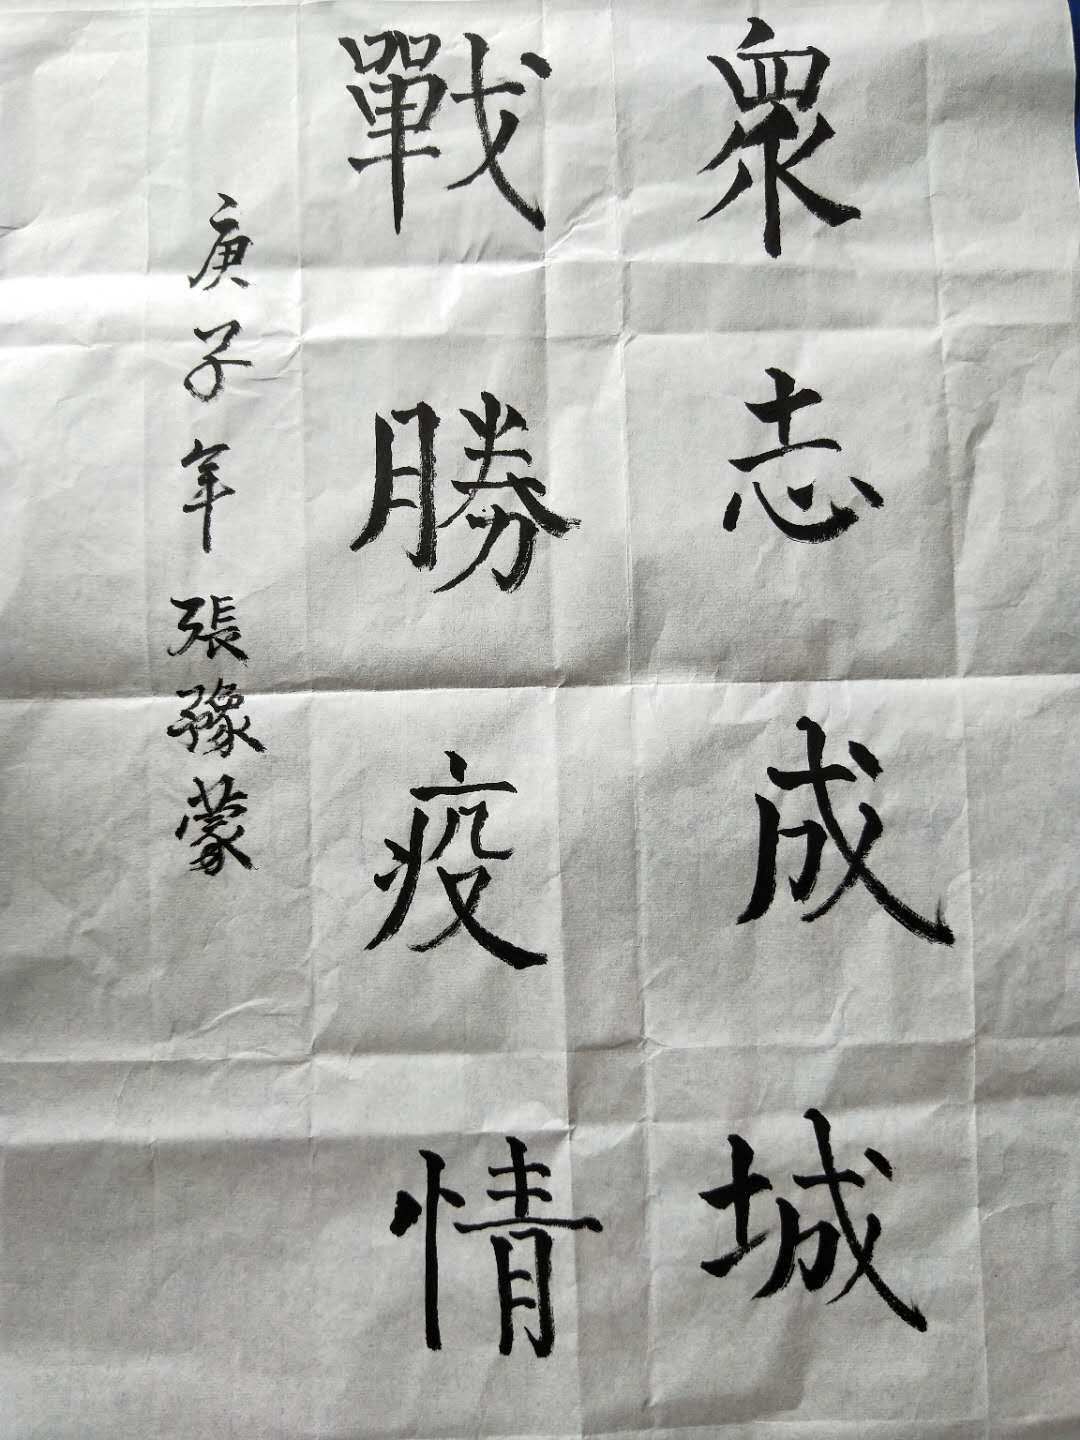 衆志成城
戰勝疫情
庚子年張豫蒙